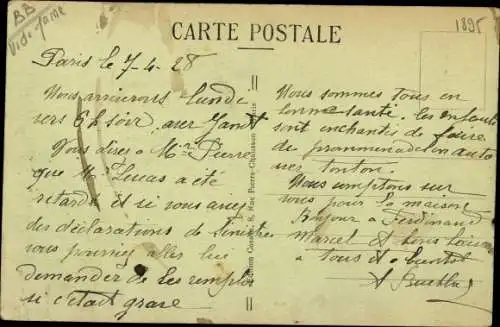 BB
Vide fane
1895
CARTE POSTALE
Paris le 7-4-28
Nous arriverons lundi
vers 6 h soir, avec Janot
Vous direz à Mr Pierre
que Mr Lucas a été
retardé et si vous aviez
des déclarations de sinistre
vous pourriez aller lui
demander de les remplir
si c'était grave
Nous sommes tous en
bonne santé. les enfants
sont enchantés de faire
de promenade en auto
avec tonton.
Nous comptons sur
vous pour la maison
Bonjour à Ferdinand
Marcel et bons baisers
à tous et à bientôt
8, Rue Pierre-Chausson